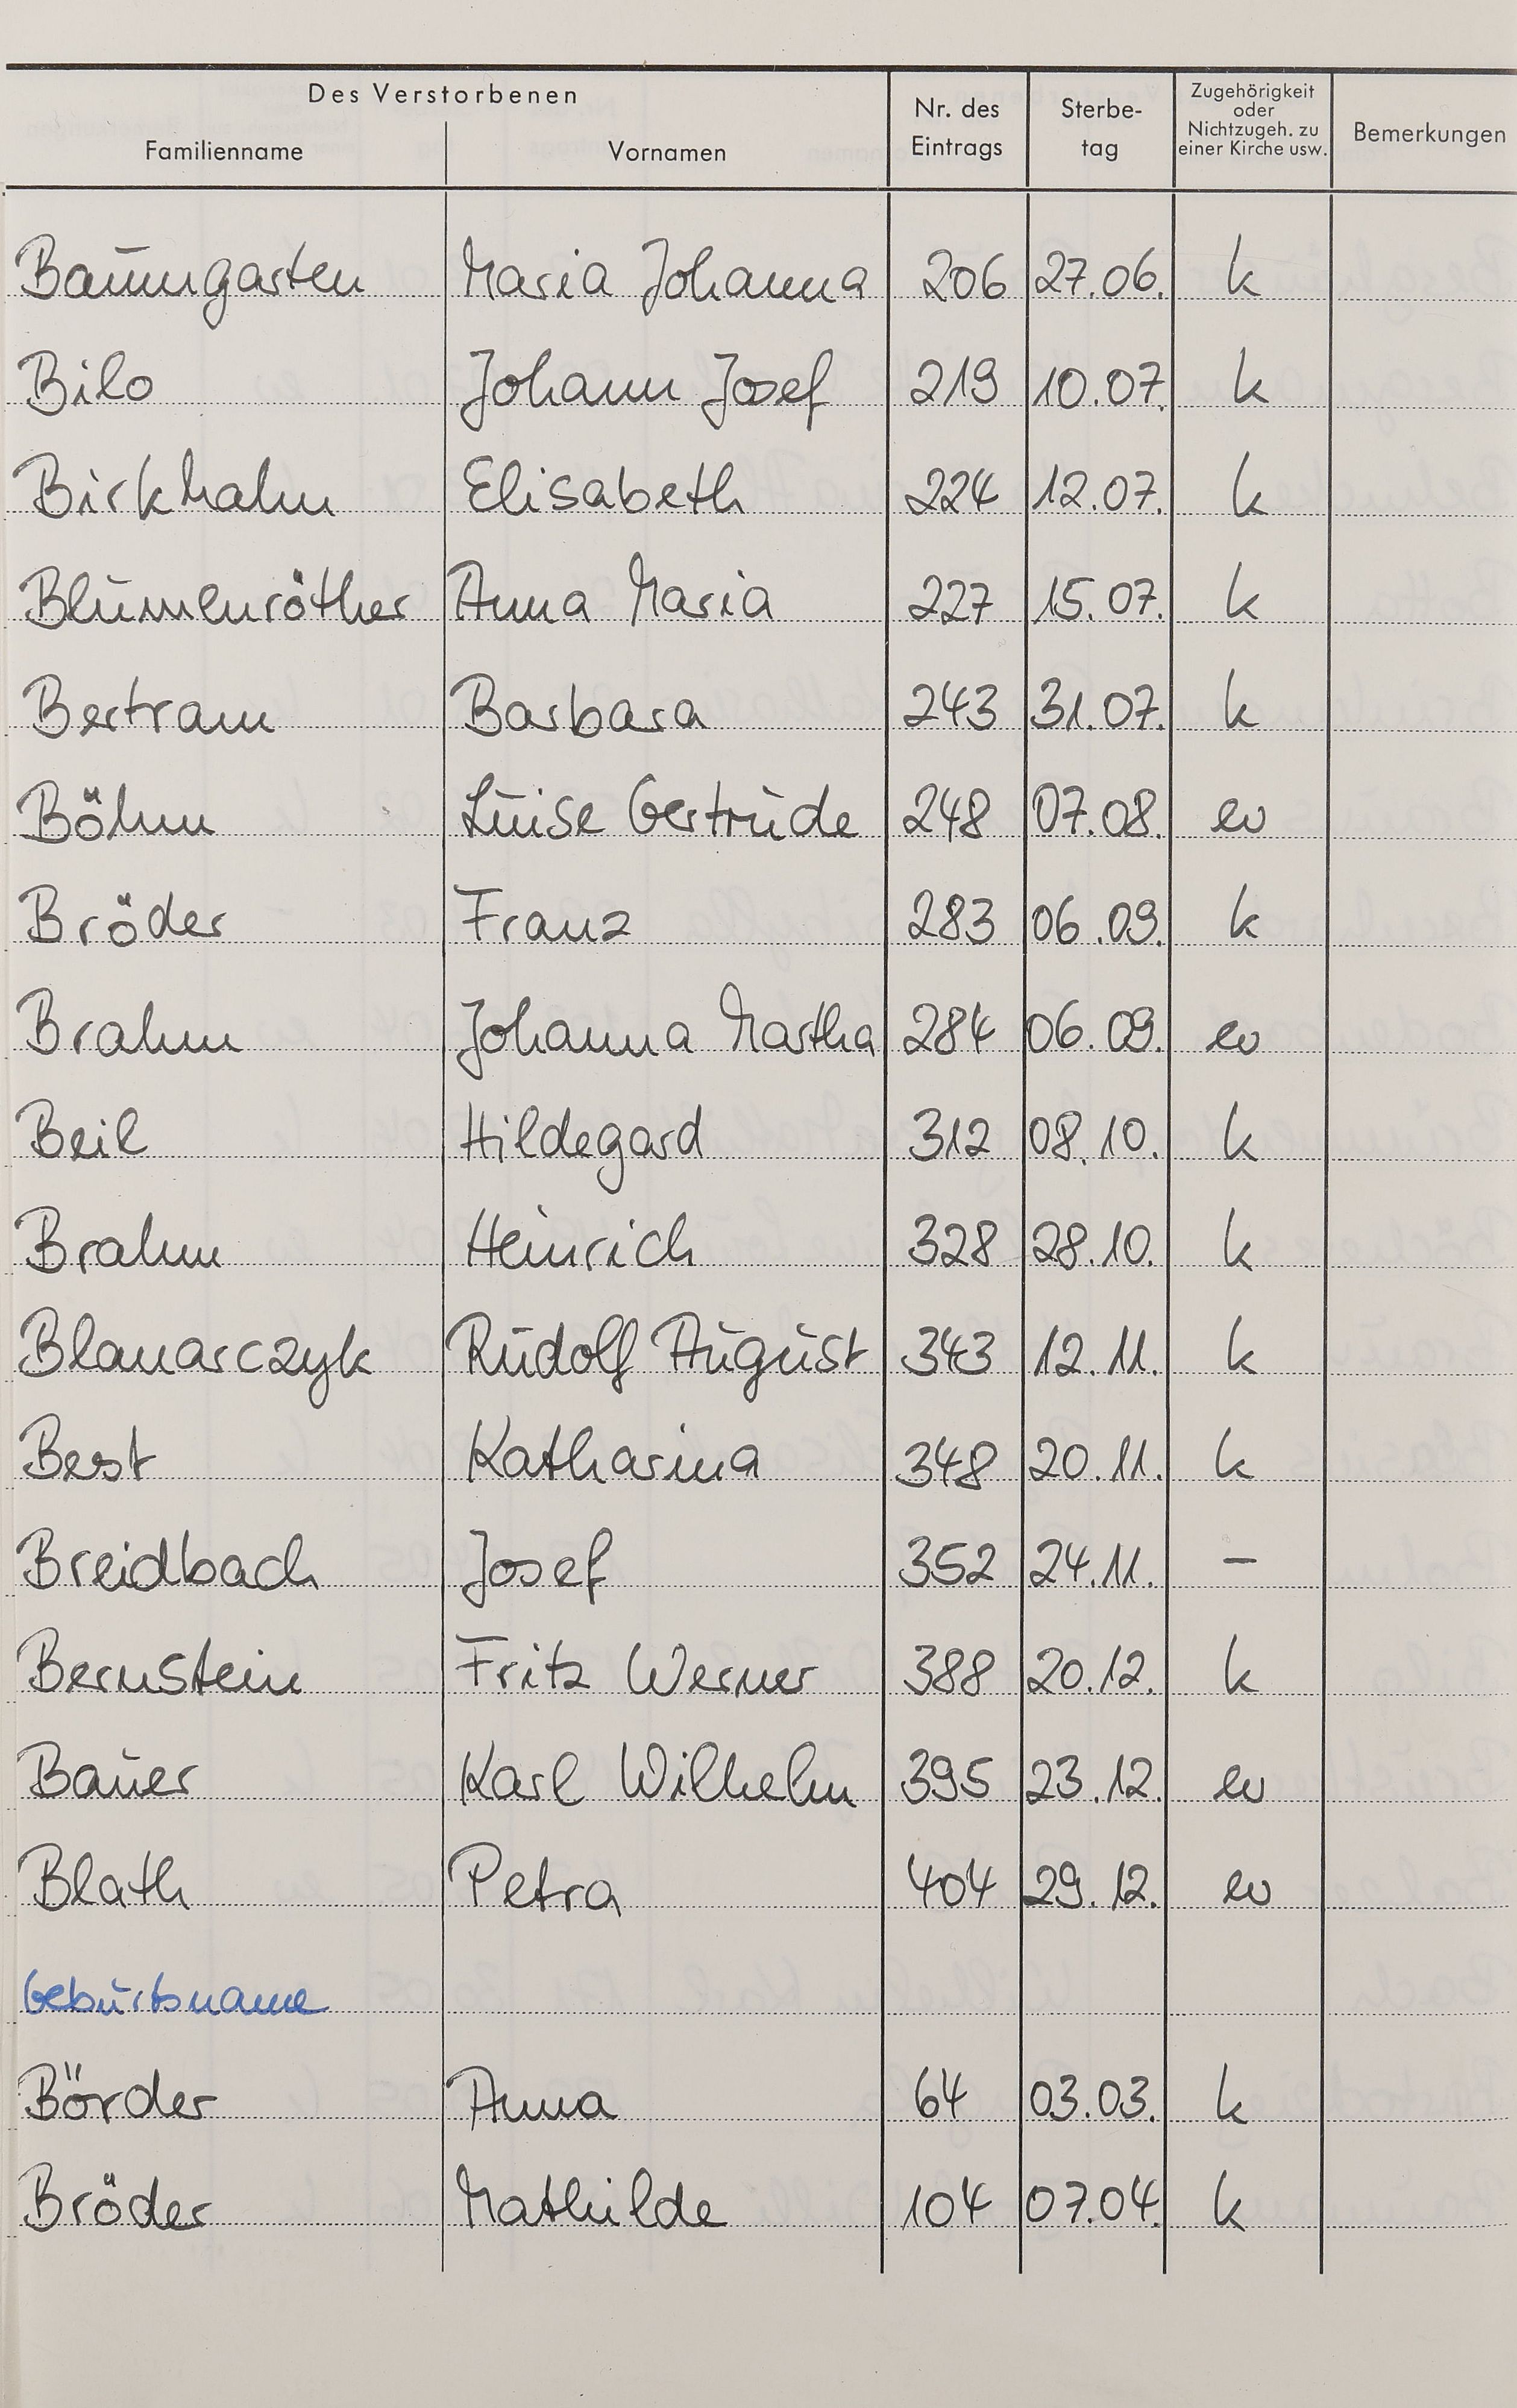 Des Verstorbenen
Familienname Vornamen Nr. des Eintrags Sterbe-tag Zugehörigkeit oder Nichtzugeh. zu einer Kirche usw. Bemerkungen
Baumgarten Maria Johanna 206 27.06. k
Bilo Johann Josef 219 10.07. k
Birkhahn Elisabeth 224 12.07. k
Blumenröther Anna Maria 227 15.07. k
Bertram Barbara 243 31.07. k
Böhm Luise Gertrude 248 07.08. ev
Bröder Franz 283 06.09. k
Brahm Johanna Martha 284 06.09. ev
Beil Hildegard 312 08.10. k
Brahm Heinrich 328 28.10. k
Blanarczyk Rudolf August 343 12.11. k
Best Katharina 348 20.11. k
Breidbach Josef 352 24.11. –
Bernstein Fritz Werner 388 20.12. k
Bauer Karl Wilhelm 395 23.12. ev
Blath Petra 404 29.12. ev
Geburtsname
Börder Anna 64 03.03. k
Bröder Mathilde 104 07.04. k